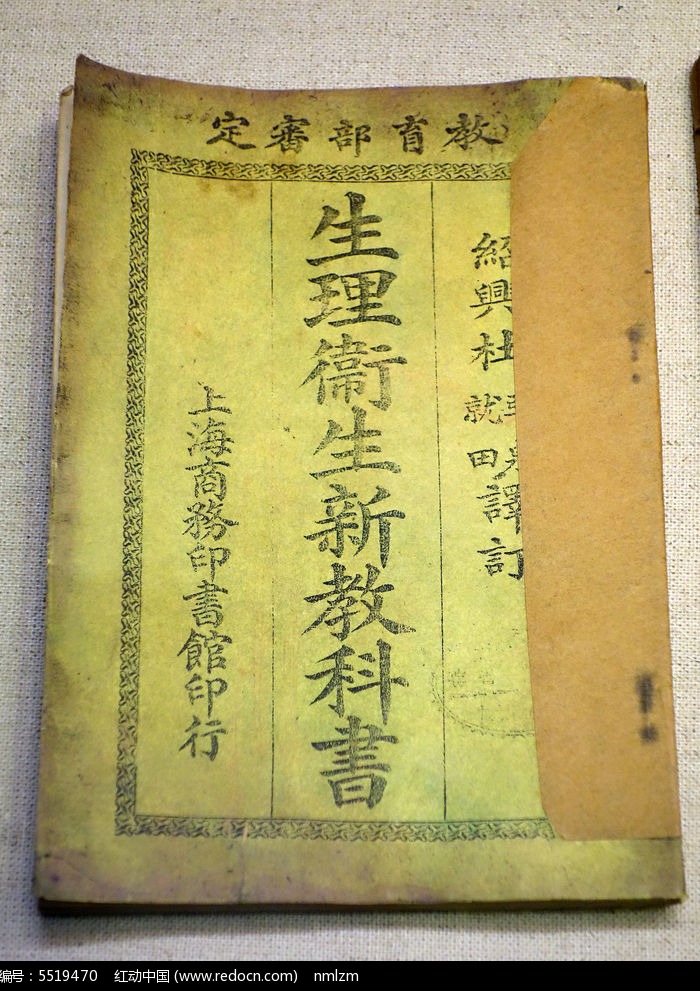 教育部審定
紹興杜
就
田
譯訂
生理衛生新教科書
上海商務印書館印行
编号：5519470 红动中国 (www.redocn.com) nmlzm